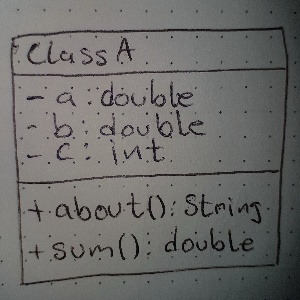 Class A
- a : double
- b : double
- c : int
+ about() : String
+ sum() : double